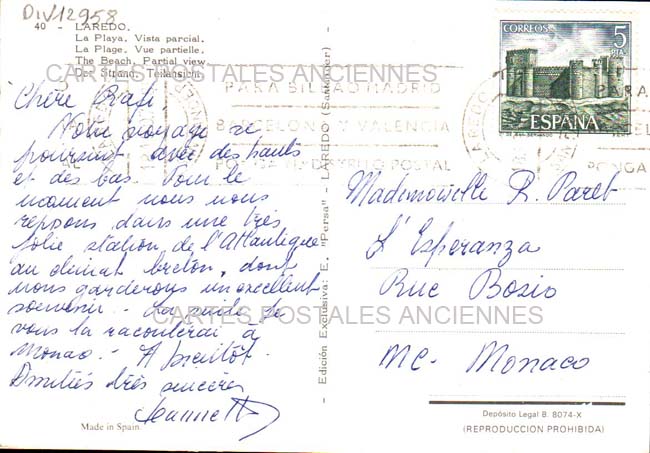 DIV12958
40 - LAREDO.
La Playa. Vista parcial.
La Plage. Vue partielle.
The Beach. Partial view.
Der Strand. Teilansicht.
CARTES POSTALES ANCIENNES
Chère Rafi,
Notre voyage se
poursuit avec des hauts
et des bas. Pour le
moment nous nous
reposons dans une très
jolie station de l'Atlantique
au climat breton, dont
nous garderons un excellent
souvenir. La suite je
vous la raconterai à
Monaco. A bientôt.
Amitiés très sincères
Jeannette
Made in Spain
Edición Exclusiva: E. "Persa" - LAREDO (Santander)
PARA BILBAO MADRID
BARCELONA Y VALENCIA
PONGA DISTRITO POSTAL
LAREDO
CORREOS
5
PTAS
ESPAÑA
PARA
PONGA
Mademoiselle R. Paret
L'Esperanza
Rue Bosio
MC - Monaco
CARTES POSTALES ANCIENNES
Depósito Legal B. 8074-X
(REPRODUCCION PROHIBIDA)